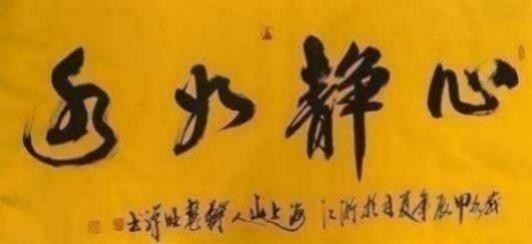 心静如水
岁次甲辰年夏月於浙江 海上山人